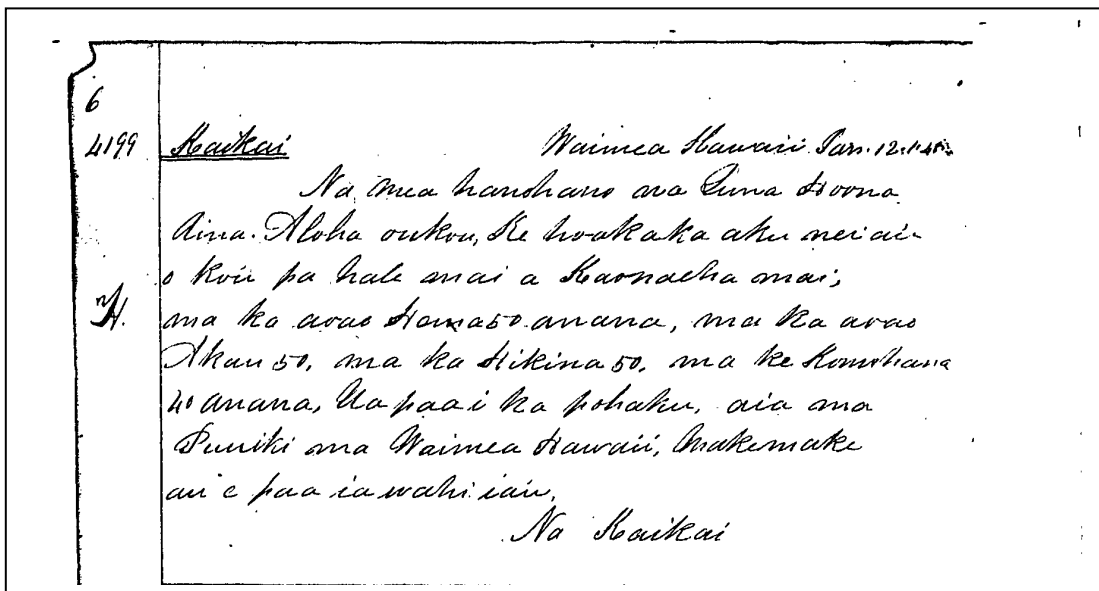 6
4199 Kaikai Waimea Hawaii Jan. 12. 1848.
Na mea hanohano na Luna Hoona
Aina. Aloha oukou, Ke hoakaka aku nei au
o kou pa hale mai a mai,
H. ma ka aoao Hema 50 anana, ma ka aoao
Akau 50, ma ka Hikina 50, ma ke Komohana
40 anana, Ua paa i ka pohaku, aia ma
Puuiki ma Waimea Hawaii, Makemake
au e paa ia wahi iau,
Na Kaikai